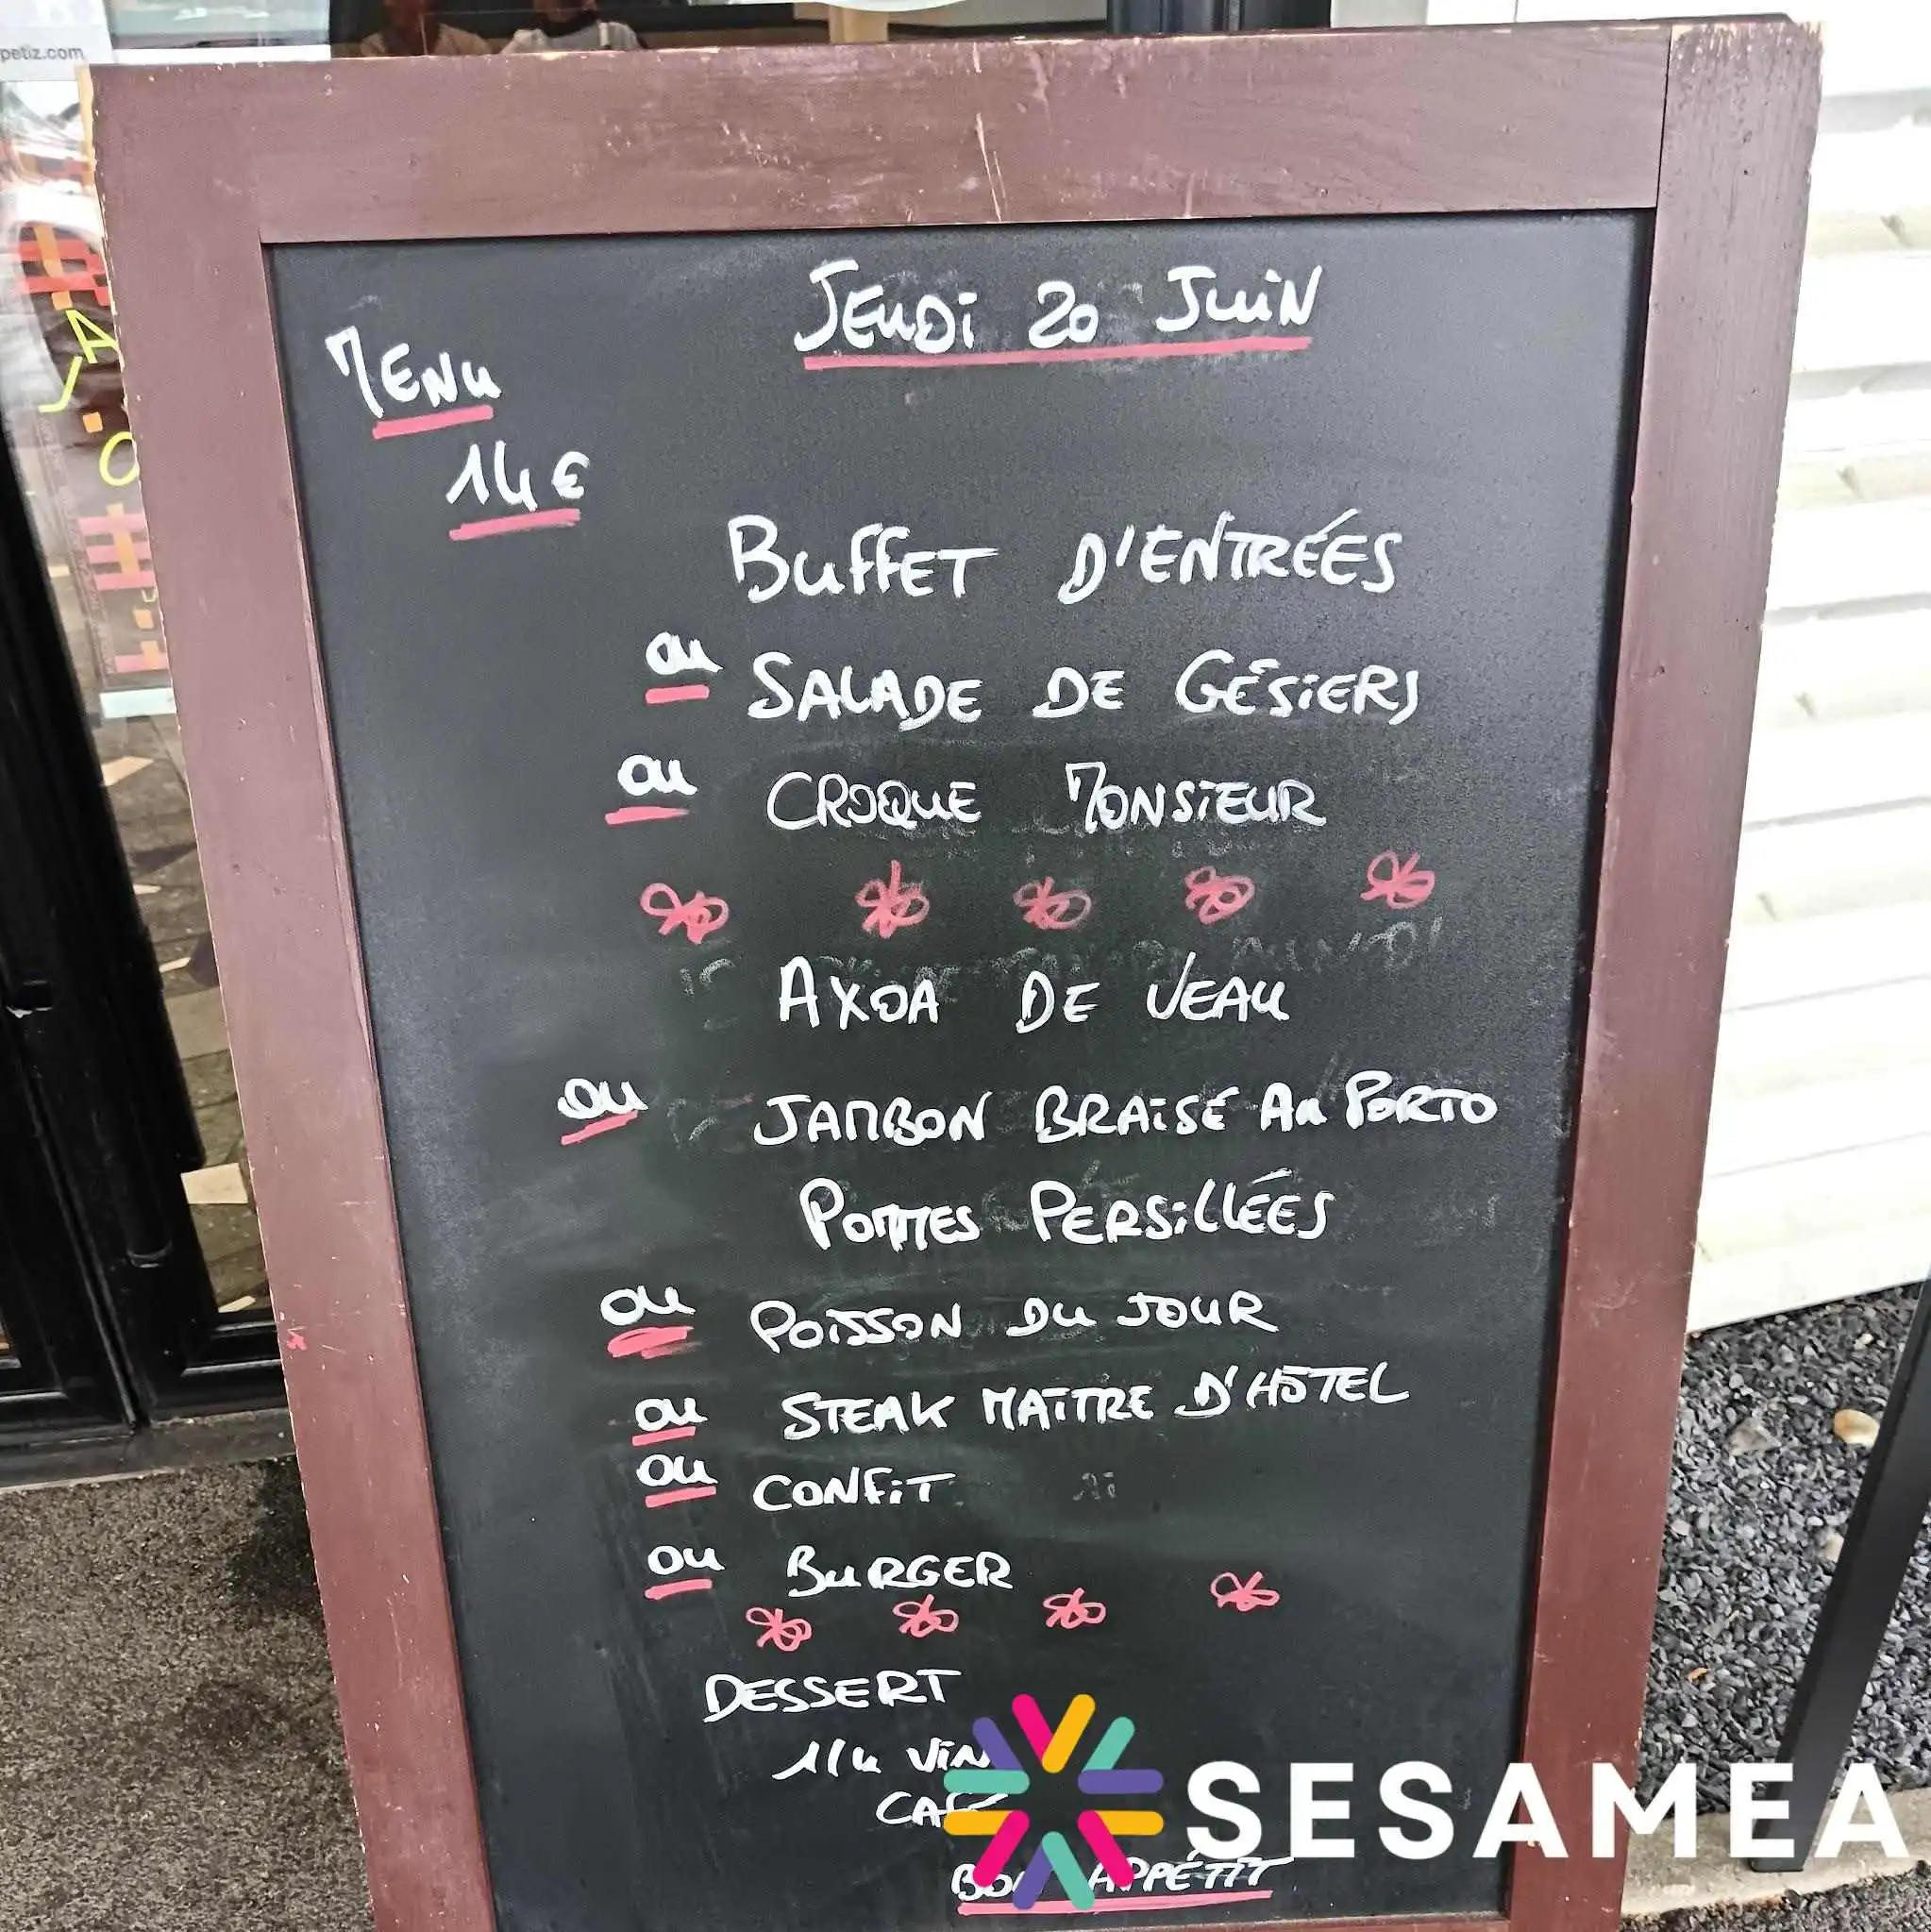 petiz.com
JEUDI 20 JUIN
MENU
14€
BUFFET D'ENTRÉES
OU SALADE DE GÉSIERS
OU CROQUE MONSIEUR
AXOA DE VEAU
OU JAMBON BRAISÉ AU PORTO
POMMES PERSILLÉES
OU POISSON DU JOUR
OU STEAK MAÎTRE D'HÔTEL
OU CONFIT
OU BURGER
DESSERT
1/4 VIN
CAFÉ
SESAMEA
BON APPÉTIT